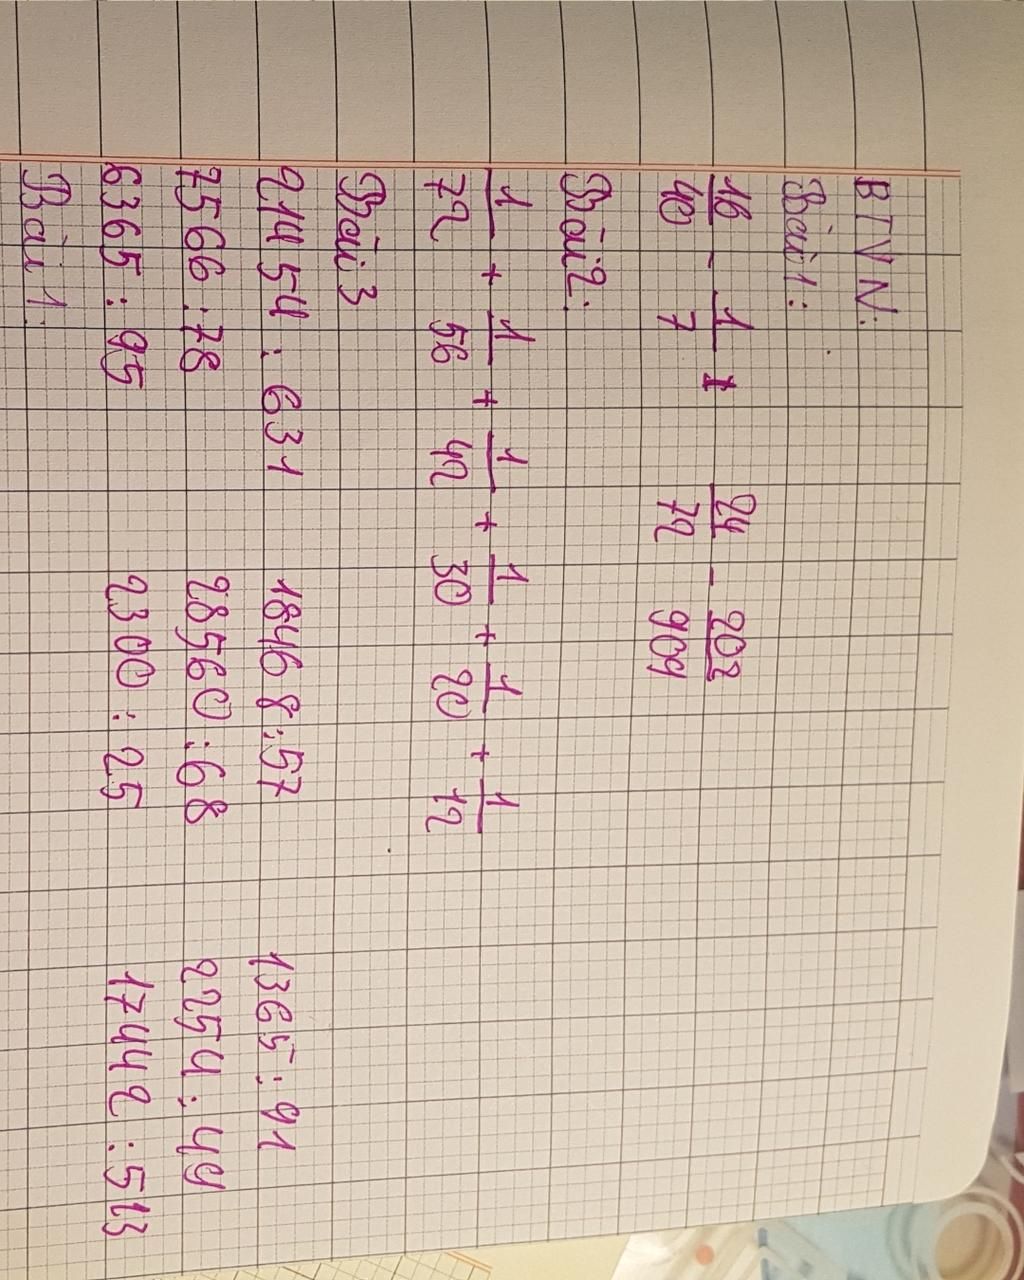 BTVN.
Bài 1:
16/40 - 1/7 24/72 - 202/909
Bài 2:
1/72 + 1/56 + 1/42 + 1/30 + 1/20 + 1/12
Bài 3
21454 : 631 18468 : 57 1365 : 91
7566 : 78 28560 : 68 2254 : 49
6365 : 95 2300 : 25 17442 : 513
Bài 1: